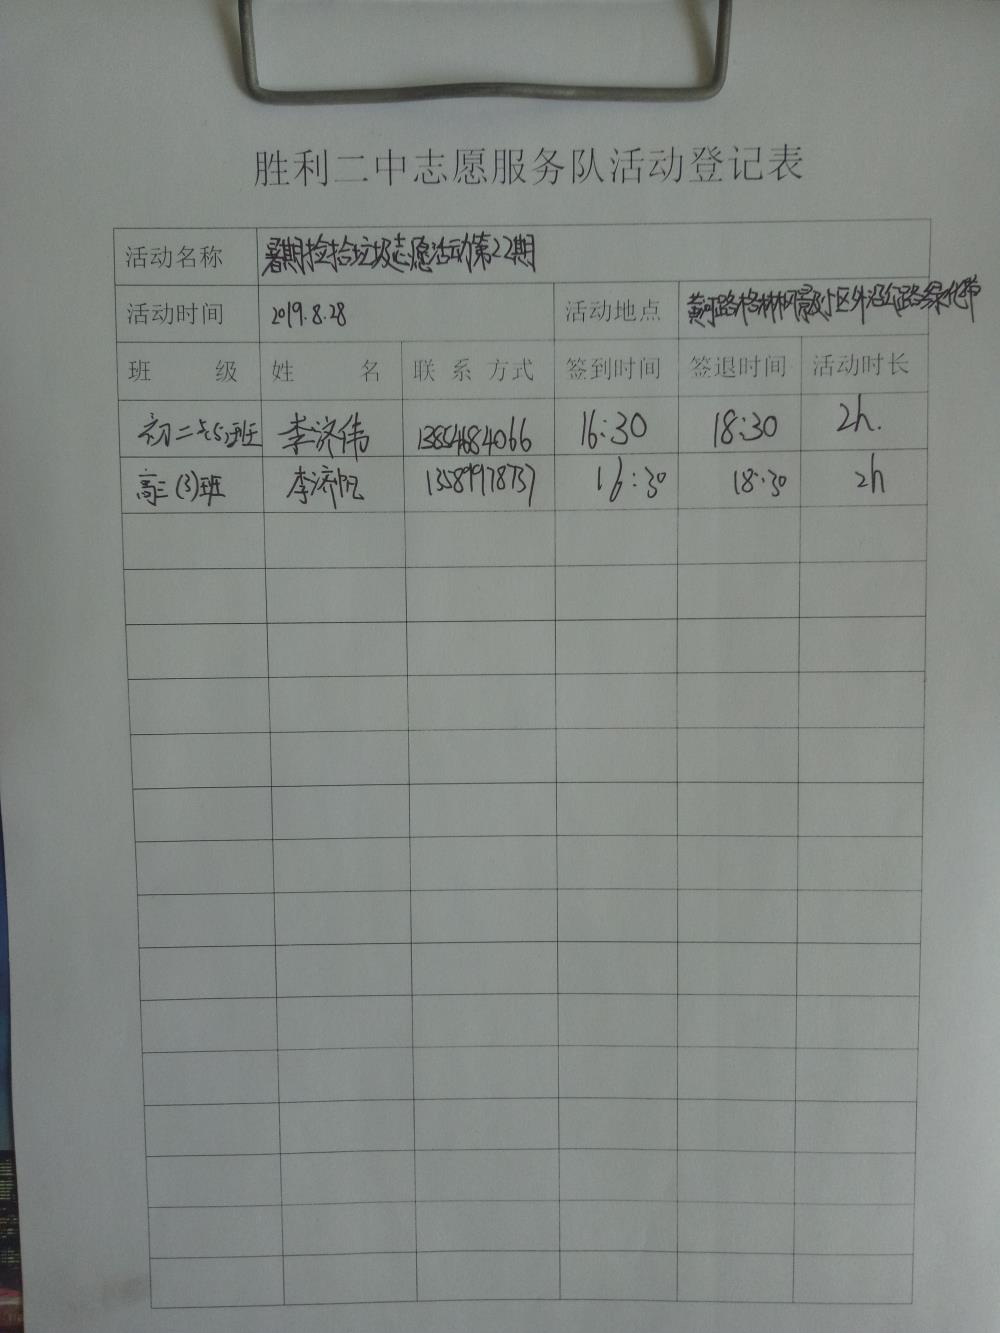 胜利二中志愿服务队活动登记表
活动名称 暑期捡拾垃圾志愿活动第22期
活动时间 2019.8.28 活动地点 黄河路格林枫景小区外沿公路绿化带
班 级 姓 名 联 系 方式 签到时间 签退时间 活动时长
初二(5)班 李济伟 13854684066 16:30 18:30 2h.
高三(3)班 李济帆 13589978737 16:30 18:30 2h